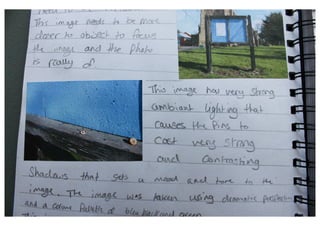 This image needs to be more
closer to object to focus
the image and the photo
is really of
This image has very strong
ambiant lighting that
causes the Pins to
cast very strong
and contrasting
Shadows that sets a mood and tone to the
image. The image was taken using dramatic
and a colour Palette of blue back and green